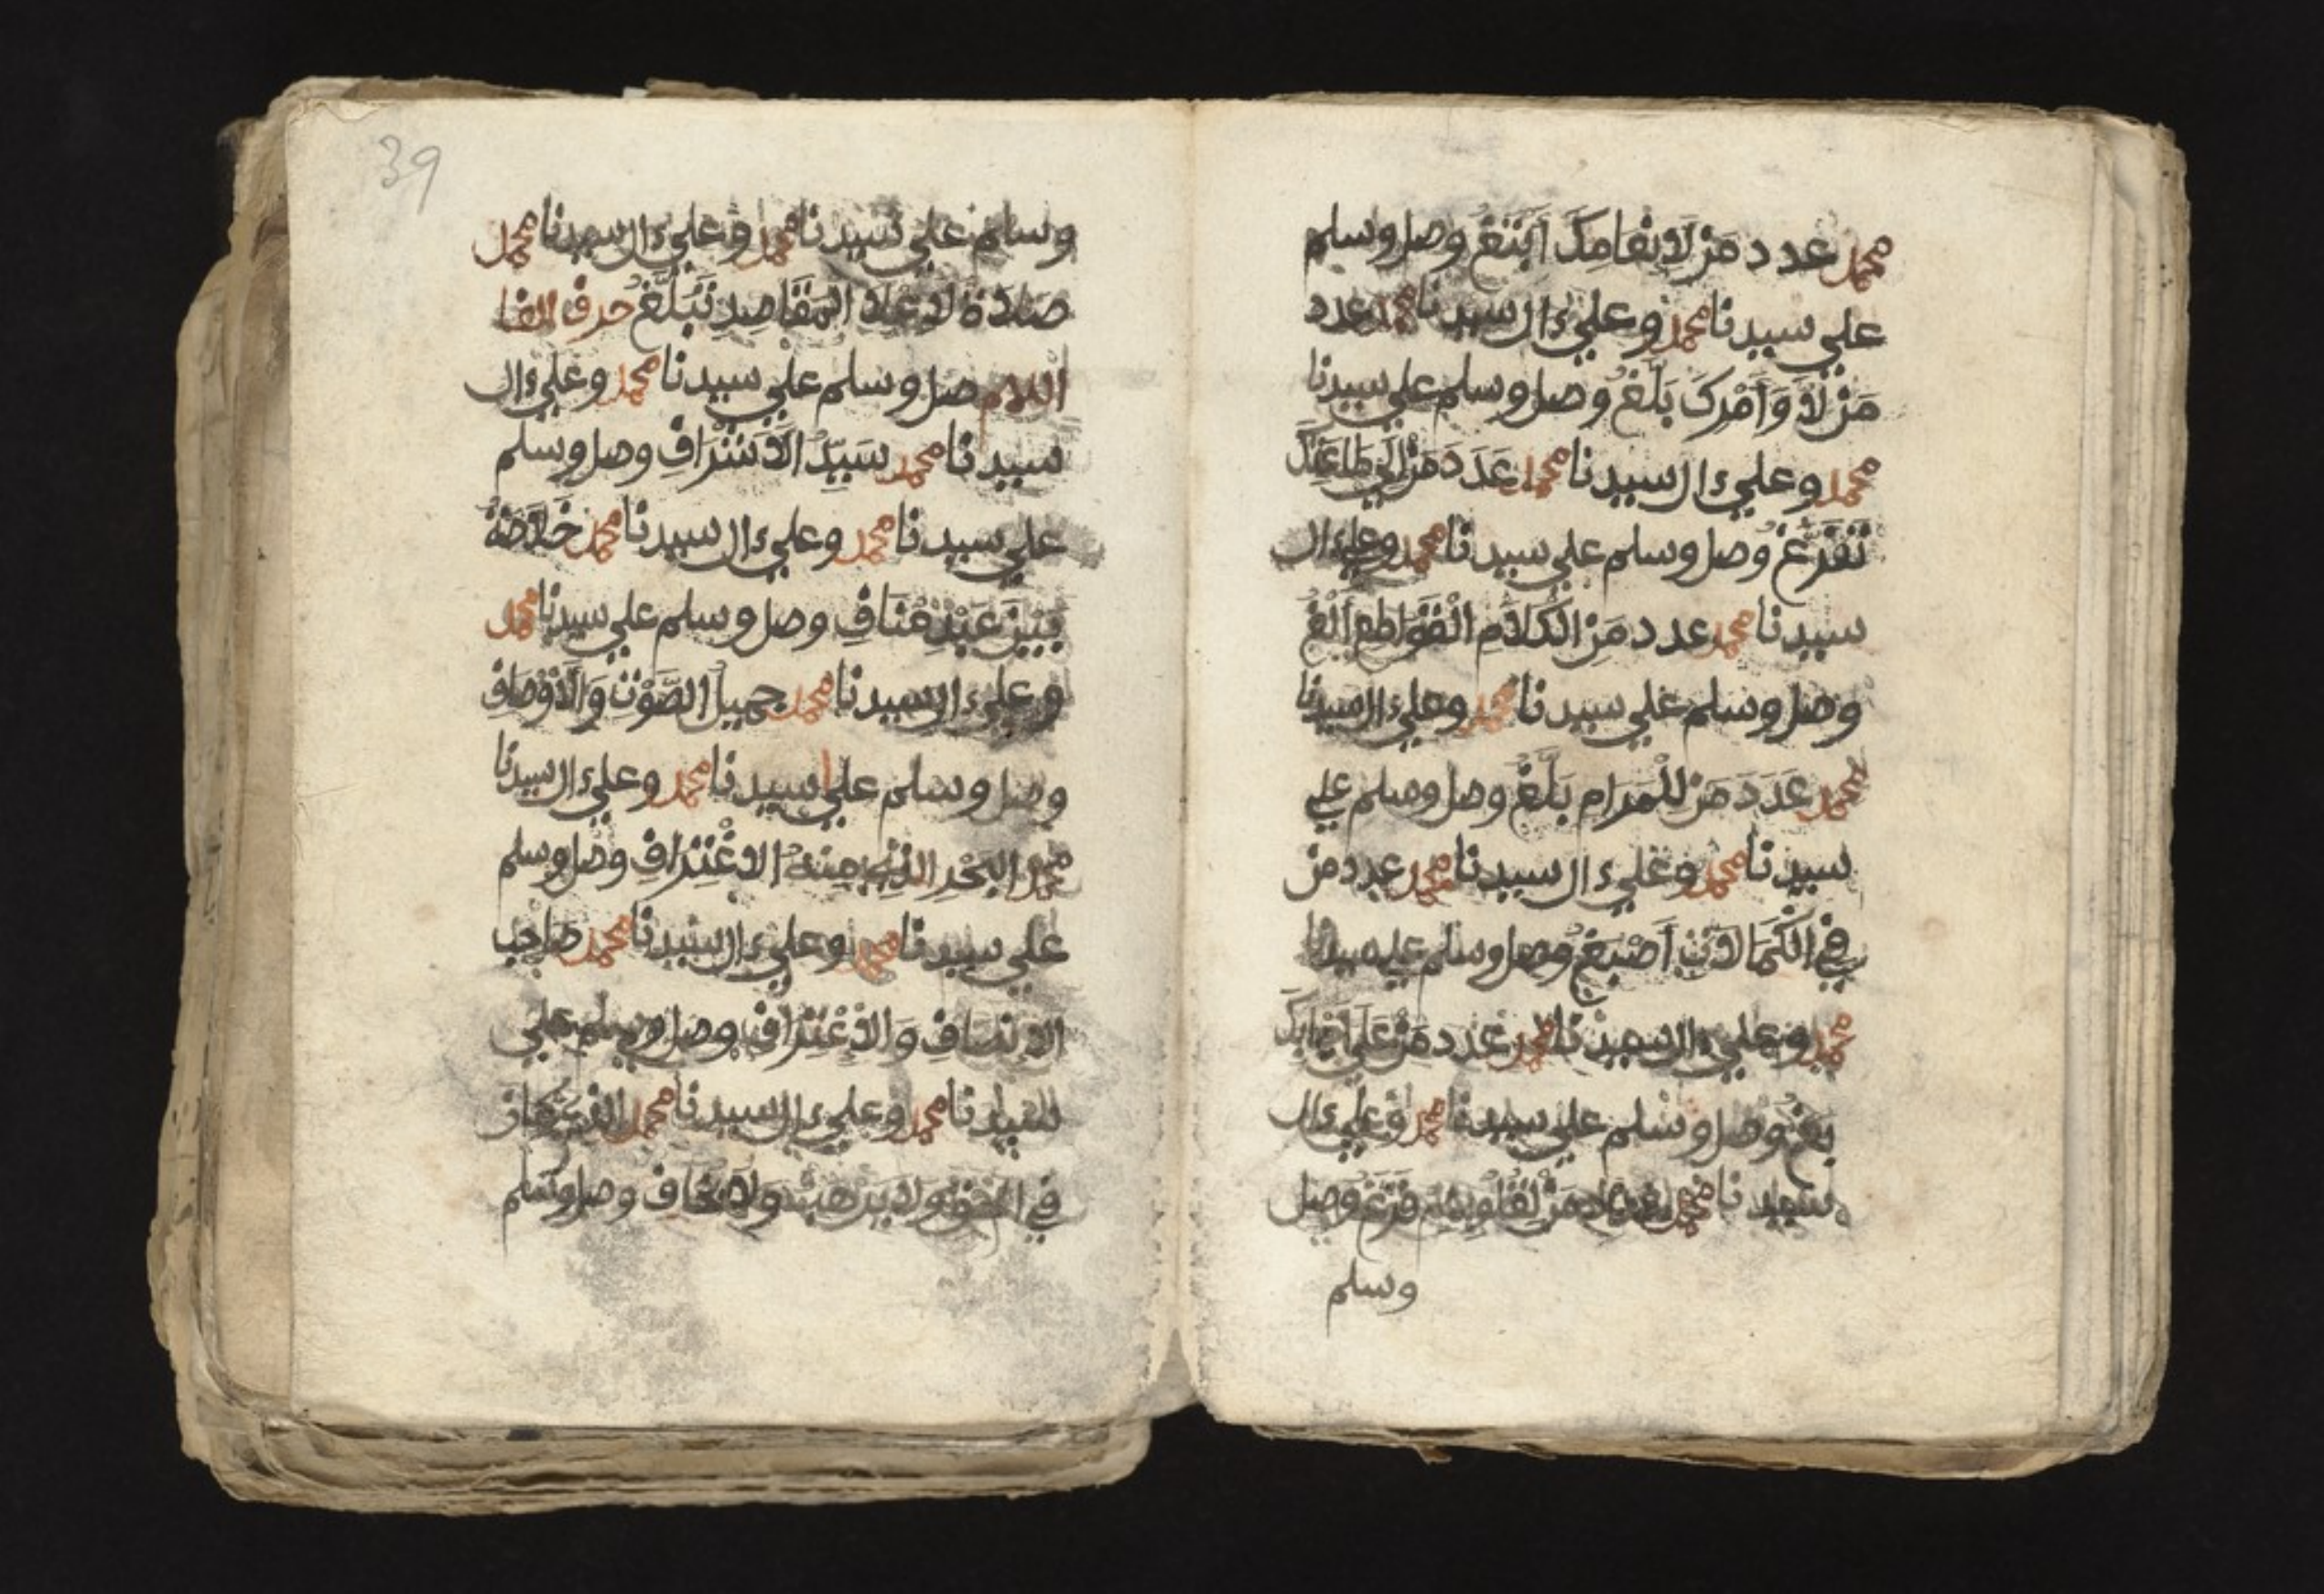 محمد عدد من لانقامك أبتغ وصل وسلم
علي سيدنا محمد وعلي ءال سيدنا محمد عدد
من لاوامرك بلغ وصل وسلم علي سيدنا
محمد وعلي ءال سيدنا محمد عدد من
تفرغ وصل وسلم علي سيدنا محمد وعلي ءال
سيدنا محمد عدد من الكلام القواطع ألغ
وصل وسلم علي سيدنا محمد وعلي ءال سيدنا
محمد عدد من للمرام بلغ وصل وسلم علي
سيدنا محمد وعلي ءال سيدنا محمد عدد من
في الكمالات أصبغ وصل وسلم علي سيدنا
محمد وعلي ءال سيدنا محمد عدد من علي
وصل وسلم علي سيدنا محمد وعلي ءال
سيدنا محمد فرغ وصل
وسلم
39
وسلم علي سيدنا محمد وعلي ءال سيدنا محمد
صلاة لاعلا المقاصد تبلغ حرف الفا
اللهم صل وسلم علي سيدنا محمد وعلي ءال
سيدنا محمد سيد الأشراف وصل وسلم
علي سيدنا محمد وعلي ءال سيدنا محمد خلاصة
بني عبد مناف وصل وسلم علي سيدنا محمد
وعلي ءال سيدنا محمد جميل الصوت والأوصاف
وصل وسلم علي سيدنا محمد وعلي ءال سيدنا
محمد البحر الذي منه الاغتراف وصل وسلم
علي سيدنا محمد وعلي ءال سيدنا محمد صاحب
وصل وسلم علي
سيدنا محمد وعلي ءال سيدنا محمد
في وصل وسلم